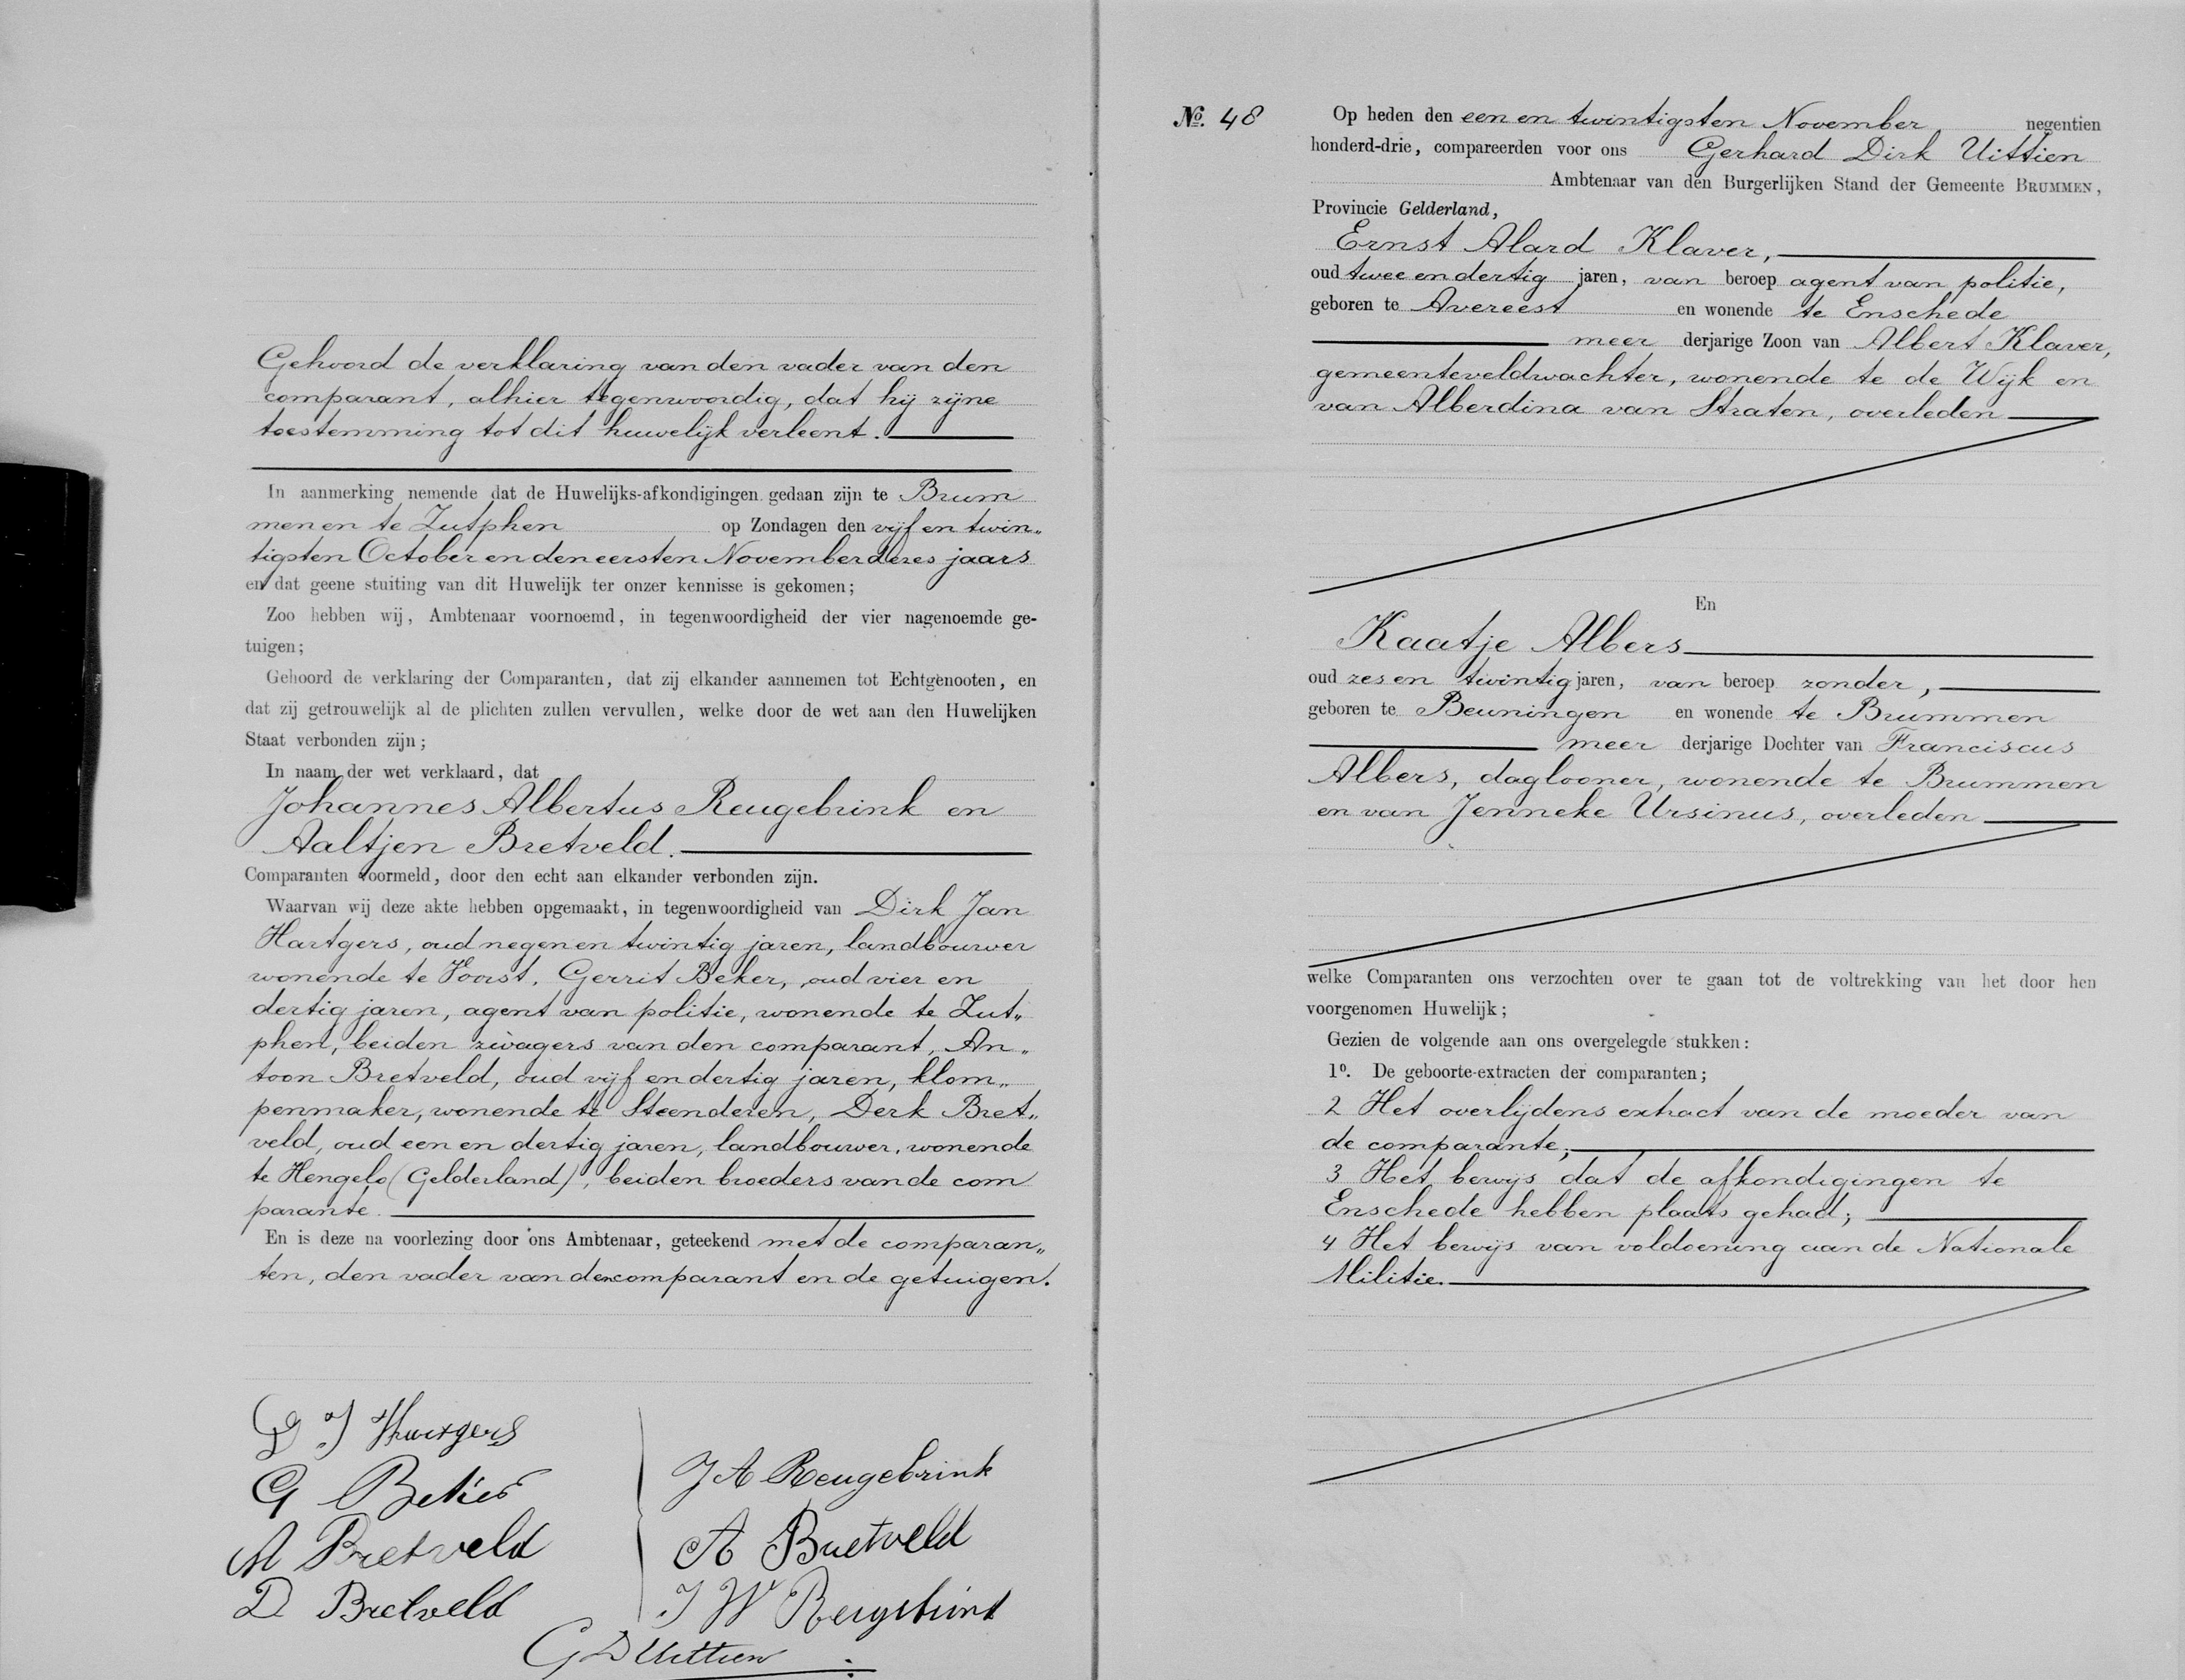 Gehoord de verklaring van den vader van den
comparant, alhier tegenwoordig, dat hij zijne
toestemming tot dit huwelijk verleent.
In aanmerking nemende dat de Huwelijks-afkondigingen gedaan zijn te Brum
men en te Zutphen op Zondagen den vijf en twin„
tigsten October en den eersten November dezes jaars
en dat geene stuiting van dit Huwelijk ter onzer kennisse is gekomen;
Zoo hebben wij, Ambtenaar voornoemd, in tegenwoordigheid der vier nagenoemde ge-
tuigen;
Gehoord de verklaring der Comparanten, dat zij elkander aannemen tot Echtgenooten, en
dat zij getrouwelijk al de plichten zullen vervullen, welke door de wet aan den Huwelijken
Staat verbonden zijn;
In naam der wet verklaard, dat
Johannes Albertus Reugebrink en
Aaltjen Bretveld.
Comparanten voormeld, door den echt aan elkander verbonden zijn.
Waarvan wij deze akte hebben opgemaakt, in tegenwoordigheid van Dirk Jan
Hartgers, oud negen en twintig jaren, landbouwer
wonende te Voorst, Gerrit Beker, oud vier en
dertig jaren, agent van politie, wonende te Zut„
phen, beiden zwagers van den comparant, An„
toon Bretveld, oud vijf en dertig jaren, klom„
penmaker, wonende te Steenderen, Derk Bret„
veld, oud een en dertig jaren, landbouwer, wonende
te Hengelo (Gelderland), beiden broeders van de com
parante.
En is deze na voorlezing door ons Ambtenaar, geteekend met de comparan„
ten, den vader van den comparant en de getuigen.
D J Hartgers
G Beker
A Bretveld
D Bretveld
J A Reugebrink
A Bretveld
J W Reugebrink
G D Uittien
No. 48
Op heden den een en twintigsten November negentien
honderd-drie, compareerden voor ons Gerhard Dirk Uittien
Ambtenaar van den Burgerlijken Stand der Gemeente BRUMMEN,
Provincie Gelderland,
Ernst Alard Klaver,
oud twee en dertig jaren, van beroep agent van politie,
geboren te Avereest en wonende te Enschede
meer derjarige Zoon van Albert Klaver,
gemeenteveldwachter, wonende te de Wijk en
van Alberdina van Straten, overleden
En
Kaatje Albers
oud zes en twintig jaren, van beroep zonder,
geboren te Beuningen en wonende te Brummen
meer derjarige Dochter van Franciscus
Albers, daglooner, wonende te Brummen
en van Jenneke Ursinus, overleden
welke Comparanten ons verzochten over te gaan tot de voltrekking van het door hen
voorgenomen Huwelijk;
Gezien de volgende aan ons overgelegde stukken:
1o. De geboorte-extracten der comparanten;
2 Het overlijdens extract van de moeder van
de comparante;
3 Het bewijs dat de afkondigingen te
Enschede hebben plaats gehad;
4 Het bewijs van voldoening aan de Nationale
Militie.